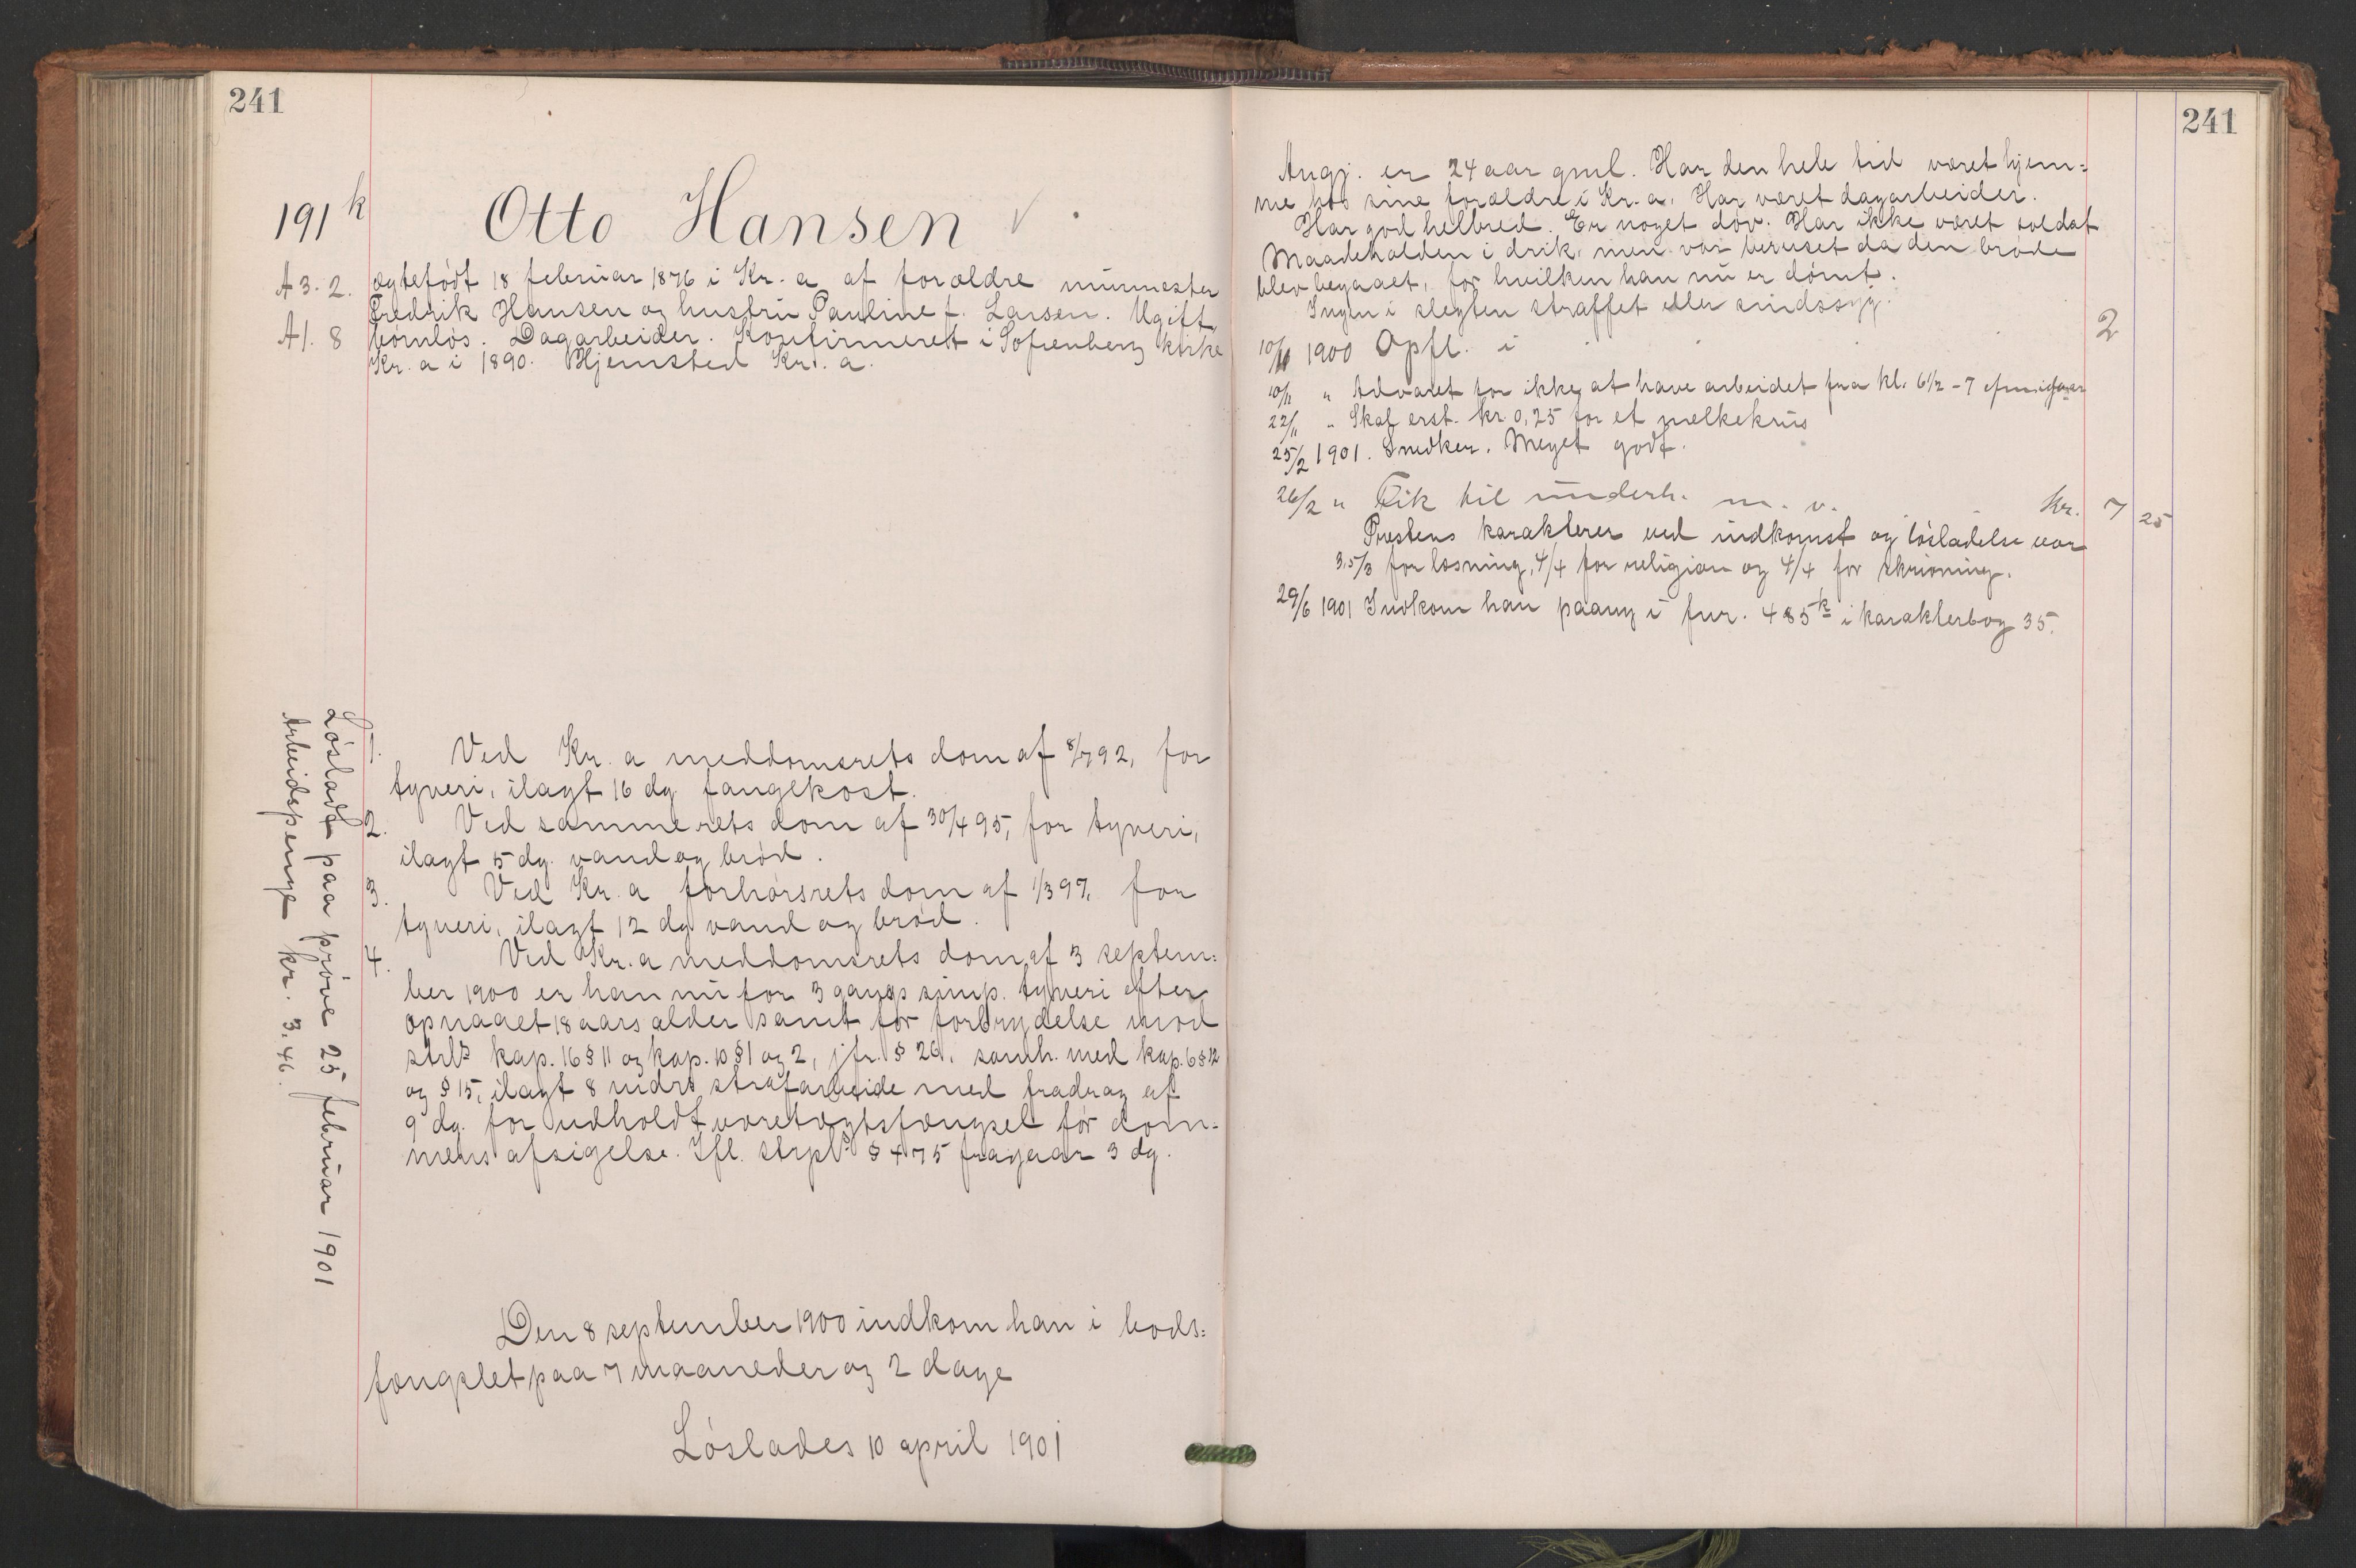 241
191 k
Otto Hansen
A 3. 2.
A 1. 8
ægtefødt 18 februar 1876 i Kr.a af forældre murmester
Fredrik Hansen og hustru Pauline f. Larsen. Ugift,
børnløs. Dagarbeider. Konfirmeret i Sofienberg kirke
Kr.a i 1890. Hjemsted Kr.a.
1. Ved Kr.a meddomsrets dom af 8/7 92, for
tyveri, ilagt 16 dg fangekost.
2. Ved samme rets dom af 30/4 95, for tyveri,
ilagt 5 dg. vand og brød.
3. Ved Kr.a forhørsrets dom af 1/3 97, for
tyveri, ilagt 12 dg vand og brød.
4. Ved Kr.a meddomsrets dom af 3 septem=
ber 1900 er han nu for 3 gangs simp. tyveri efter
opnaaet 18 aars alder samt for forbrydelse mod
strl's kap. 16 § 11 og kap. 10 § 1 og 2, jfr. § 26, samh. med kap. 6 § 12
og § 15, ilagt 8 mdrs strafarbeide med fradrag af
9 dg. for udholdt varetægtsfængsel før dom=
mens afsigelse. Ifl. strpl's § 475 fragaar 3 dg.
Løsladt paa prøve 25 februar 1901
Arbeidspenge kr. 3.46.
Den 8 september 1900 indkom han i bods=
fængslet paa 7 maaneder og 2 dage
Løslades 10 april 1901
241
Angj. er 24 aar gml. Har den hele tid været hjem=
me hos sine forældre i Kr.a. Har været dagarbeider.
Har god helbred. Er noget døv. Har ikke været soldat
Maadeholden i drik, men var beruset da den brøde
blev begaaet, for hvilken han nu er dømt.
Ingen i slegten straffet eller sindssyg.
10/11 1900 Opfl. i 2
10/11 " Advaret for ikke at have arbeidet fra kl. 6 1/2 - 7 efm igaar
22/11 " Skal erst. kr. 0,25 for et melkekrus
25/2 1901. Snedker. Meget godt.
26/2 " Fik til underh. m. v. Kr. 7 25
Prestens karakterer ved indkomst og løsladelse var
3,5/3 for læsning, 4/4 for religion og 4/4 for skrivning.
29/6 1901 Indkom han paany i fnr. 485 k i karakterbog 35.